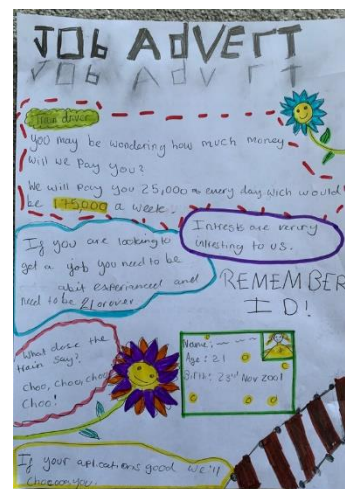 JOB ADVERT
JOB ADVERT
Train driver
you may be wondering how much money
will we pay you?
We will pay you 25,000 every day wich would
be 175,000 a week!
If you are looking to
get a job you need to be
abit experianced and
need to be 21 or over
Intrests are verry
intresting to us.
REMEMBER
ID!
What dose the
train say?
choo, choo, choo
Choo!
Name:
Age: 21
Birth: 23rd Nov 2001
If your aplications good we'll